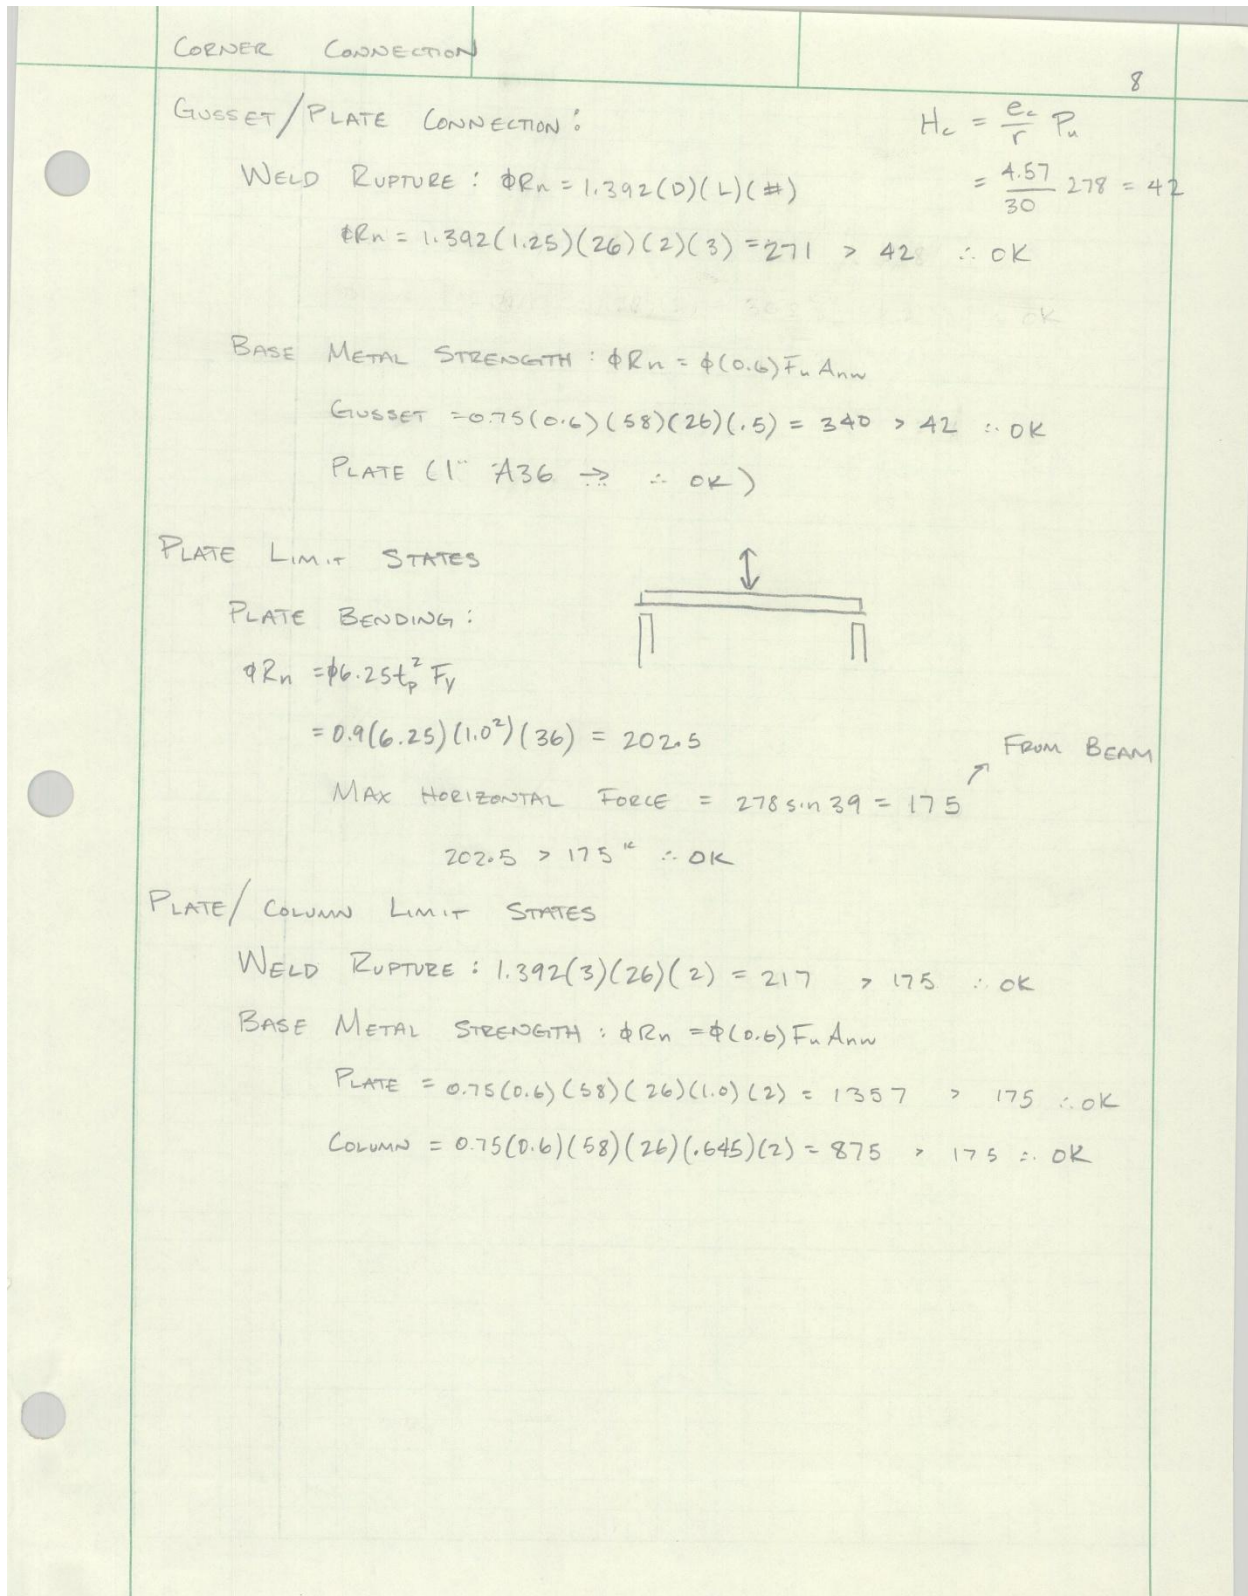 CORNER CONNECTION
8
GUSSET/PLATE CONNECTION:
Hc = ec/r Pu
WELD RUPTURE: ϕRn = 1.392(D)(L)(#)
= 4.57/30 278 = 42
ϕRn = 1.392(1.25)(26)(2)(3) = 271 > 42 ∴ OK
OK
BASE METAL STRENGTH: ϕRn = ϕ(0.6)FuAnw
GUSSET = 0.75(0.6)(58)(26)(.5) = 340 > 42 ∴ OK
PLATE (1" A36 → ∴ OK)
PLATE LIMIT STATES
PLATE BENDING:
ϕRn = ϕ6.25tp² Fy
= 0.9(6.25)(1.0²)(36) = 202.5
FROM BEAM
MAX HORIZONTAL FORCE = 278 sin 39 = 175
202.5 > 175 ᴷ ∴ OK
PLATE/COLUMN LIMIT STATES
WELD RUPTURE: 1.392(3)(26)(2) = 217 > 175 ∴ OK
BASE METAL STRENGTH: ϕRn = ϕ(0.6)FuAnw
PLATE = 0.75(0.6)(58)(26)(1.0)(2) = 1357 > 175 ∴ OK
COLUMN = 0.75(0.6)(58)(26)(.645)(2) = 875 > 175 ∴ OK